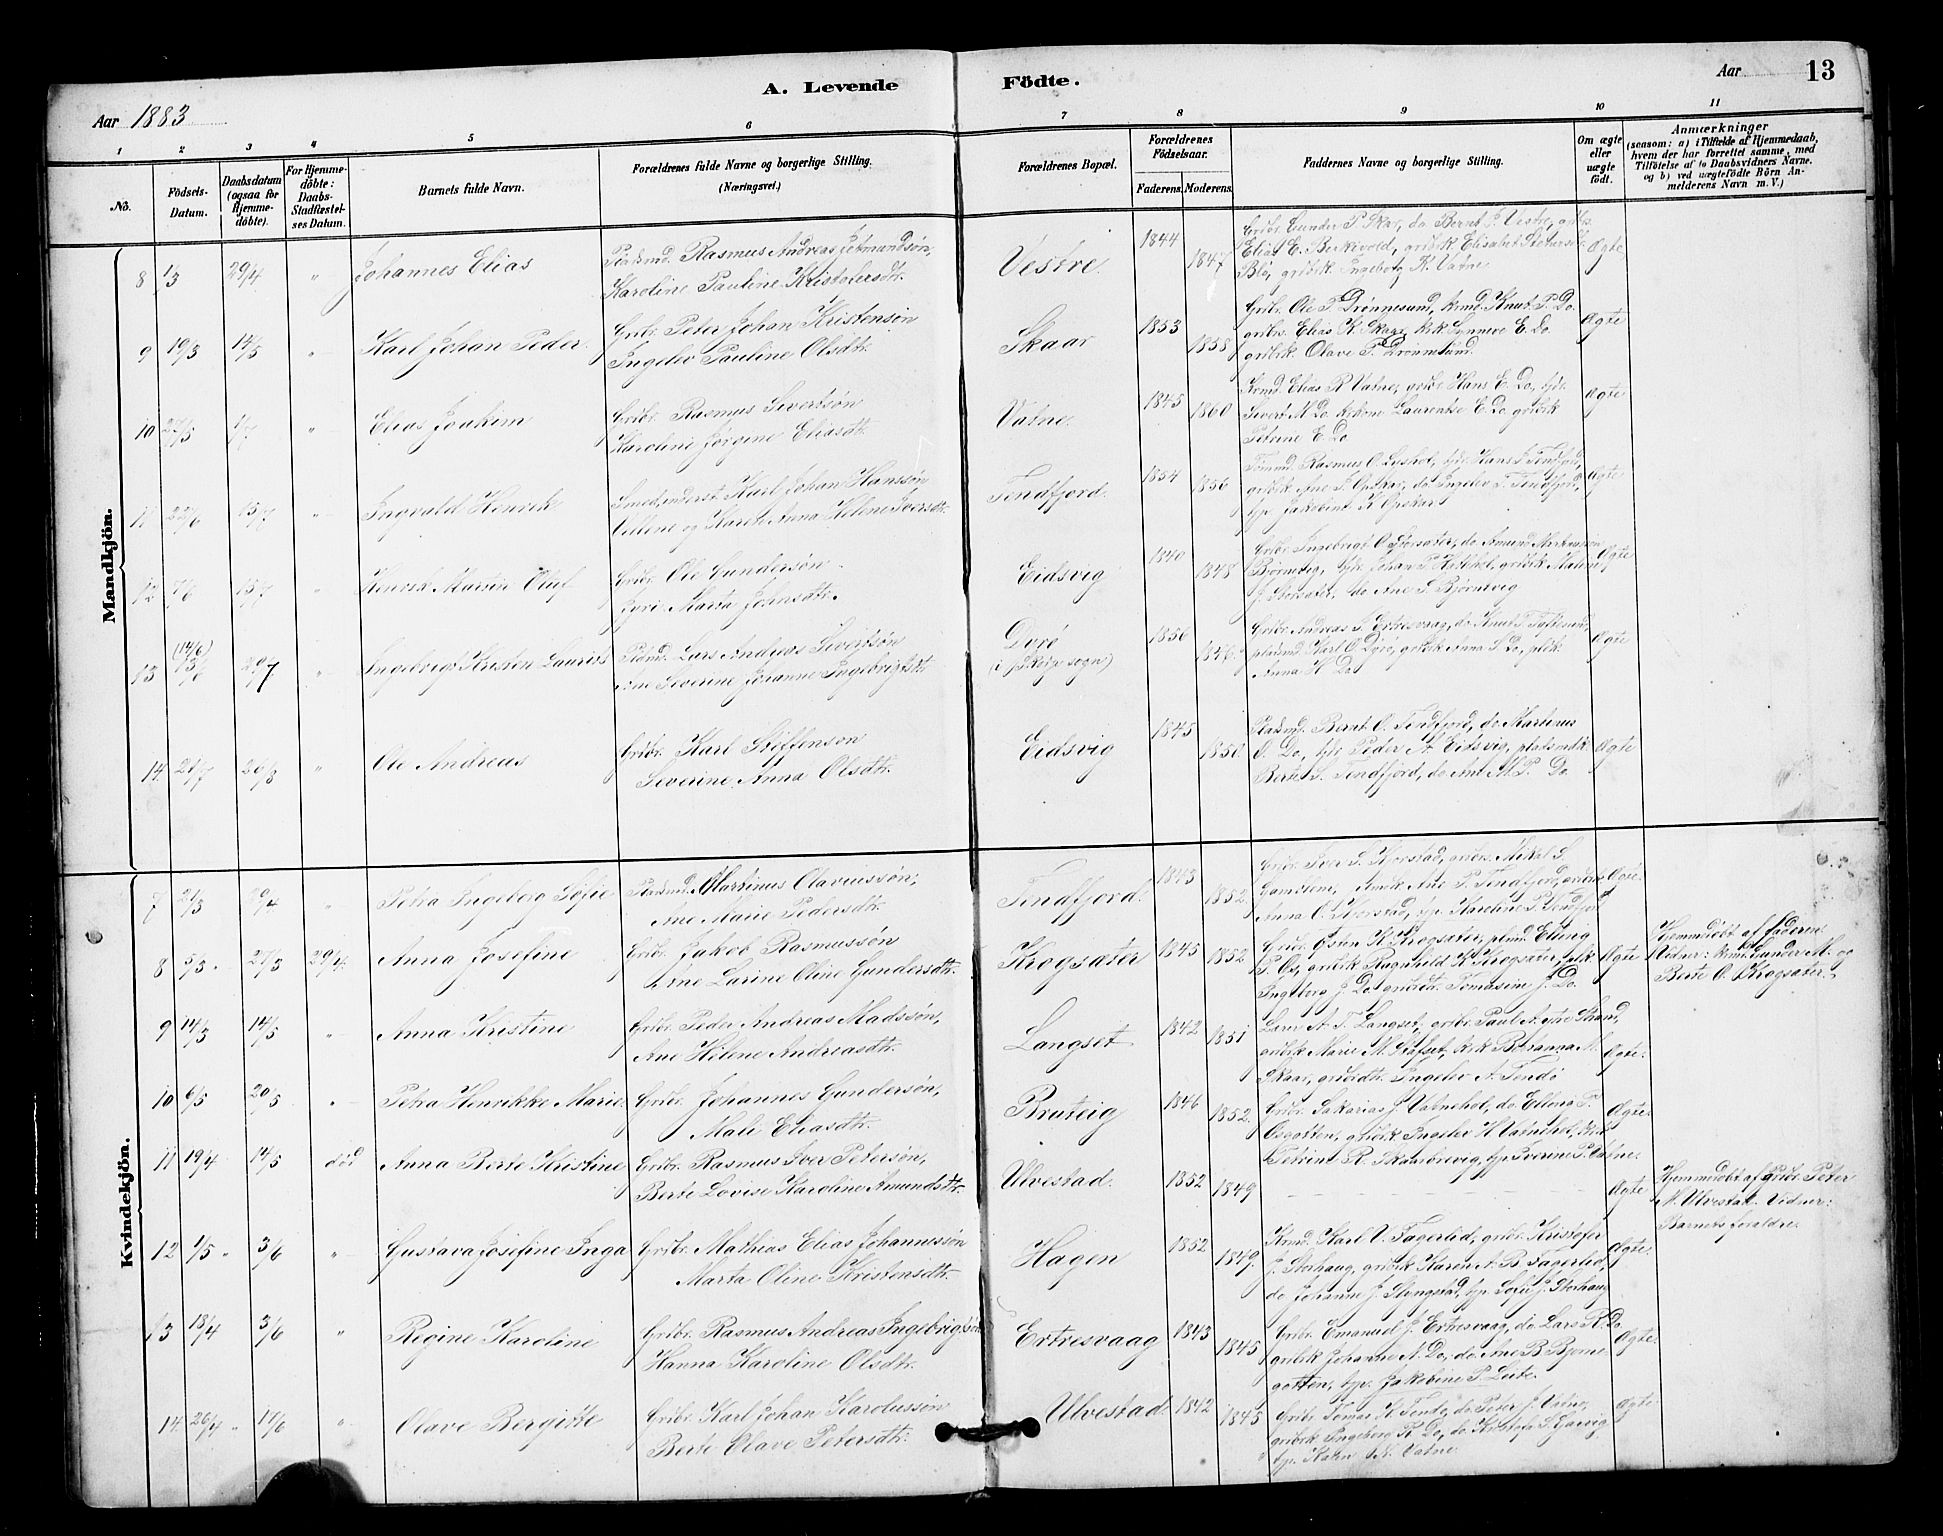 A. Levende Födte.
Aar 1883
Aar 13
1 2 3 4 5 6 7 8 9 10 11
No.
Födsels-
Datum.
Daabsdatum
(ogsaa for
Hjemme-
döbte).
For Hjemme-
döbte:
Daabs-
Stadfæstel-
ses Datum.
Barnets fulde Navn.
Forældrenes fulde Navne og borgerlige Stilling.
(Næringsvei.)
Forældrenes Bopæl.
Forældrenes
Födselsaar.
Faderens. Moderens.
Faddernes Navne og borgerlige Stilling.
Om ægte
eller
uægte
födt.
Anmærkninger
(saasom: a) i Tilfælde af Hjemmedaab,
hvem der har forrettet samme, med
Tilföielse af to Daabsvidners Navne.
og b) ved uægtefödte Börn An-
melderens Navn m. V.)
Mandkjön.
8 1/3 29/4 " Johannes Elias
Rasmus Andreas
Karoline Pauline Kristofersdtr.
Vestre. 1844 1847
Gribr. Gunder P. Skar, do. Bernt P. Vestre,
Elias E. Berkivold, gribrk Elisabet
Blø, gribrk. Ingeborg K. Vatne
Ægte
9 19/3 14/5 " Karl Johan Peder
Grbr. Peter Johan Kristensøn
Ingelev Pauline Olsdtr.
Skaar 1853 1858
Grbr. Ole T. Drønnesund, krmd. Knut P. Do.
grbr. Elias K. Skaar, krk Synneve E. Do.
gribrk Olave T. Drønnesund.
Ægte
10 1/7 " Elias Joakim
Grbr. Rasmus Sivertsøn
Karoline Jørgine Eliasdtr.
Vatne. 1845 1860
Krmd. Elias R Vatne, gribr Hans E. Do,
Sivert M. Do. Laurentse E. Do. gribrk
Petrine E. Do
Ægte
11 22/6 15/7 " Ingvald Henrik
Karl Johan Hanssøn
Anna Helene Iversdtr.
Tendfjord. 1854 1856
Rasmus O. Hans Tendfjord,
gribrk Ane P. Opskar, do. Ingelev T. Tendfjord,
Jakobine K Opskar
Ægte
12 7/6 15/7 " Henrik Martin Oluf
Grbr. Ole Gundersøn
Marta Johnsdtr.
Eidsvig 1840 1848
Grbr. Ingebrigt O. do. Amund
Bjørnevig, Johan P. gribrk Malene
J. do Ane S. Bjørnevig
Ægte
13 (14/6) 29/7 " Ingebrigt Kristen Laurits
Lars Andreas Sivertsøn
Ane Severine Johanne Ingebrigtsdtr.
Dyrø 1856 1846.
Grbr. Andreas S. Ertresvaag, do. Knut
pladsmd. Karl O. Dyrø, gribrk Anna S. Do,
Anna K. Do
Ægte
14 21/7 26/8 " Ole Andreas
Grbr. Karl Steffensøn
Severine Anna Olsdtr.
Eidsvig 1845 1850.
Pladsmd. Bernt O. Tendfjord, do. Martinus
O. Do, Peder A. Eidsvig,
Berte S. Tendfjord, do. Ane M. P. Do
Ægte
Kvindekjön.
7 21/3 29/4 " Petra Ingeborg Sofie
Martinus Olaviussøn,
Ane Marie Pedersdtr.
Tendfjord. 1843 1852.
Grbr. Iver S. Kjerstad, Mikal S.
Gamslem, Ane P. Tendfjord,
Anna O. Kjerstad, Karoline P. Tendfjord
Ægte.
8 5/3 27/3 29/4 Anna Josefine
Grbr. Jakob Rasmussøn
Ane Larine Oline Gundersdtr.
Krogsæter 1845 1852
Grbr. Østen K. Krogsæter, Elling
P. Os, gribrk Ragnhild K. Krogsæter,
Ingeborg J. Do. Tomasine J. Do.
Ægte
Hjemmedøbt af Faderen
Vidner: Gunder M. og
Berte O. Krogsæter.
9 14/3 14/5 " Anna Kristine
Grbr. Peder Andreas Madssøn,
Ane Helene Andreasdtr.
Langset 1842 1851
A. T. Langset, grbr. Paul A. Strand,
gribrk Marie M. krk Berianna M.
Skaar, Ingelev A. Tendø
Ægte.
10 6/5 20/5 " Petra Henrikke Marie.
Grbr. Johannes Gundersøn,
Mali Eliasdtr.
Bruteig 1846 1852.
Grbr. Sakarias J. Vatnehol, do. Elling P.
gribrk Ingelev H. Vatnehol,
Petrine R. Skaarbrevig, P. Vatne.
Ægte
11 19/4 14/5 død Anna Berte Kristine
Grbr. Rasmus Iver Petersøn,
Berte Lovise Karoline Amundsdtr.
Ulvestad. 1852 1849 - - - -
Ægte
Hjemmedøbt af Grbr. Peter
Ulvestad. Vidner:
Barnets forældre.
12 1/5 " 3/6 " Gustava Josefine Inga
Grbr. Mathias Elias Johannessøn
Marta Oline Kristensdtr.
Hagen 1852 1849.
Krmd. Karl V. Fagerlid, grbr. Kristofer
J. Storhaug, gribrk Karen A. B. Fagerlid,
do Johanne J. Slyngstad, Sofie J. Storhaug
Ægte.
13 18/4 3/6 " Regine Karoline
Grbr. Rasmus Andreas Ingebrigtsøn
Hanna Karoline Olsdtr.
Ertresvaag 1843 1845
Grbr. Emanuel J. Ertresvaag, do. Lars R. Do
gribrk Johanne N. Do, do. Ane B. Bjørne-
gotten, Jakobine P. Leite.
Ægte.
14 26/4 " 17/6 " Olave Bergitte
Grbr. Karl Johan Karolussøn
Berte Olave Petersdtr.
Ulvestad 1842 1845
Grbr. Tomas K. Tendø, do. Peter J. Vatne,
gribrk Ingeborg K. Do, do.
Karen N. Vatne
Ægte.